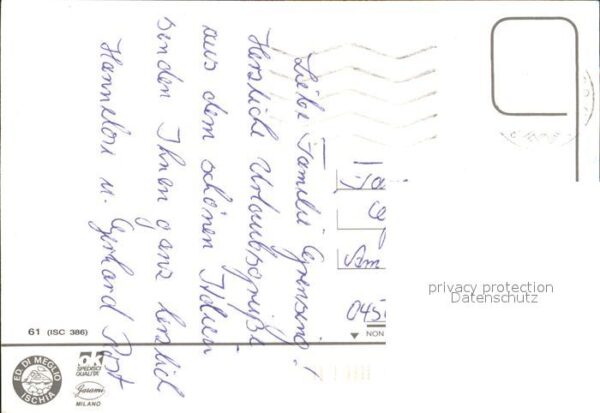 Liebe Familie Grensing!
Herzliche Urlaubsgrüße
aus dem schönen Italien
senden Ihnen ganz herzlich
Hannelore u. Gerhard
Am
045
privacy protection
Datenschutz
NON
61 (ISC 386)
ED. DI MEGLIO
ISCHIA
ok
SPEDISCI
QUALITA'
Garami
MILANO